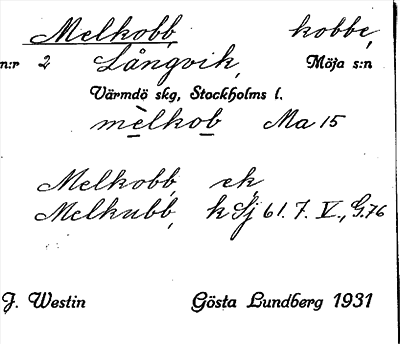 Melkobb, kobbe,
n:r 2 Långvik, Möja s:n
Värmdö skg, Stockholms l.
mèlkob Ma 15
Melkobb, ek,
Melkubb, k Sj 61. 7. V., G. 76
J. Westin Gösta Lundberg 1931